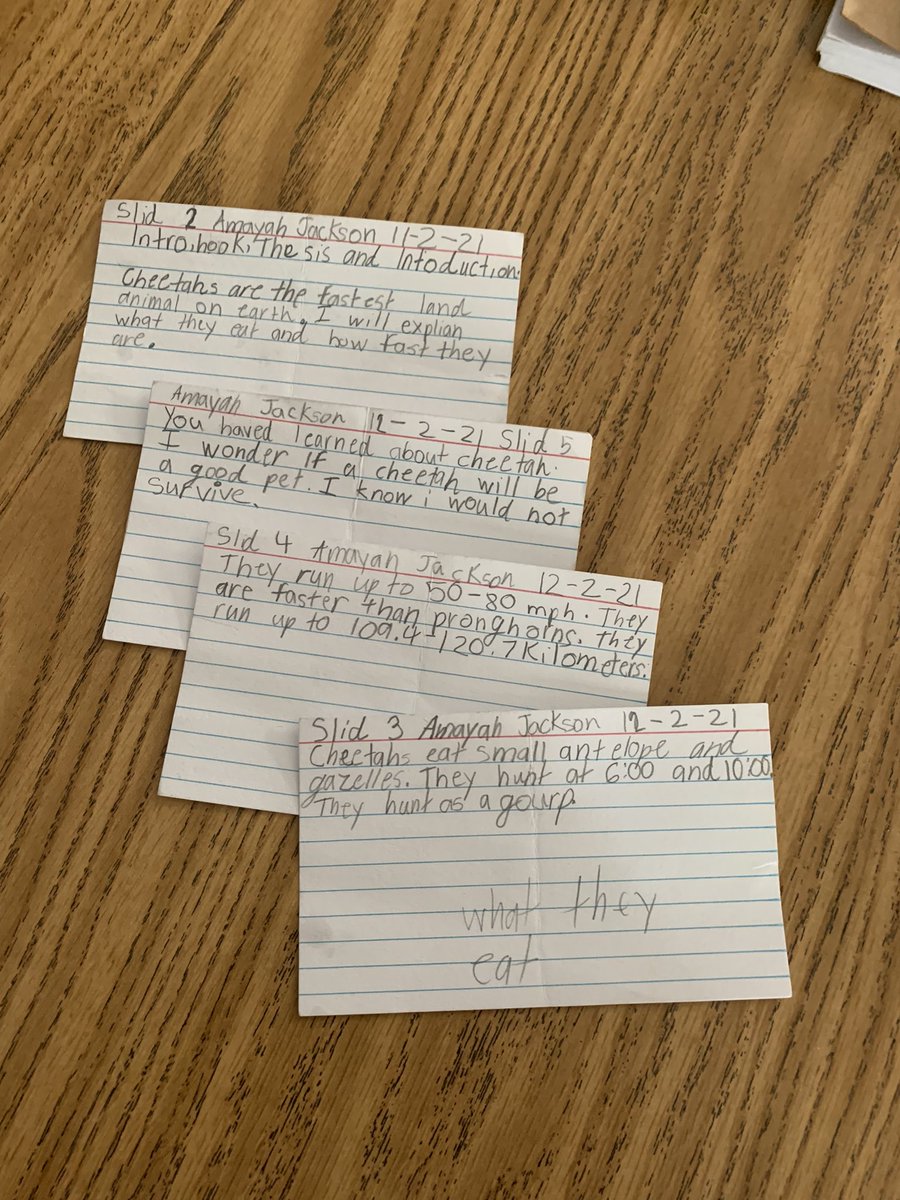 Slid 2 Amayah Jackson 11-2-21
Intro, hook, The sis and Intoduction.
Cheetahs are the fastest land
animal on earth. I will explian
what they eat and how fast they
are.
Amayah Jackson 12-2-21 Slid 5
You haved learned about cheetah.
I wonder if a cheetah will be
a good pet. I know i would not
survive.
Slid 4 Amayah Jackson 12-2-21
They run up to 50-80 mph. They
are faster than pronghorns. they
run up to 109.4-120.7 Kilometers.
Slid 3 Amayah Jackson 12-2-21
Cheetahs eat small antelope and
gazelles. They hunt at 6:00 and 10:00.
They hunt as a gourp.
what they
eat